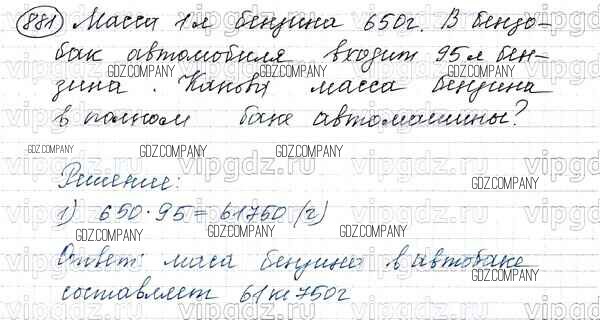 881 Масса 1 л бензина 650 г. В бензо-
бак автомобиля входит 95 л бен-
зина. Какова масса бензина
в полном баке автомашины?
Решение:
1) 650·95=61750 (г)
Ответ: маса бензина в автобаке
составляет 61 кг 750 г